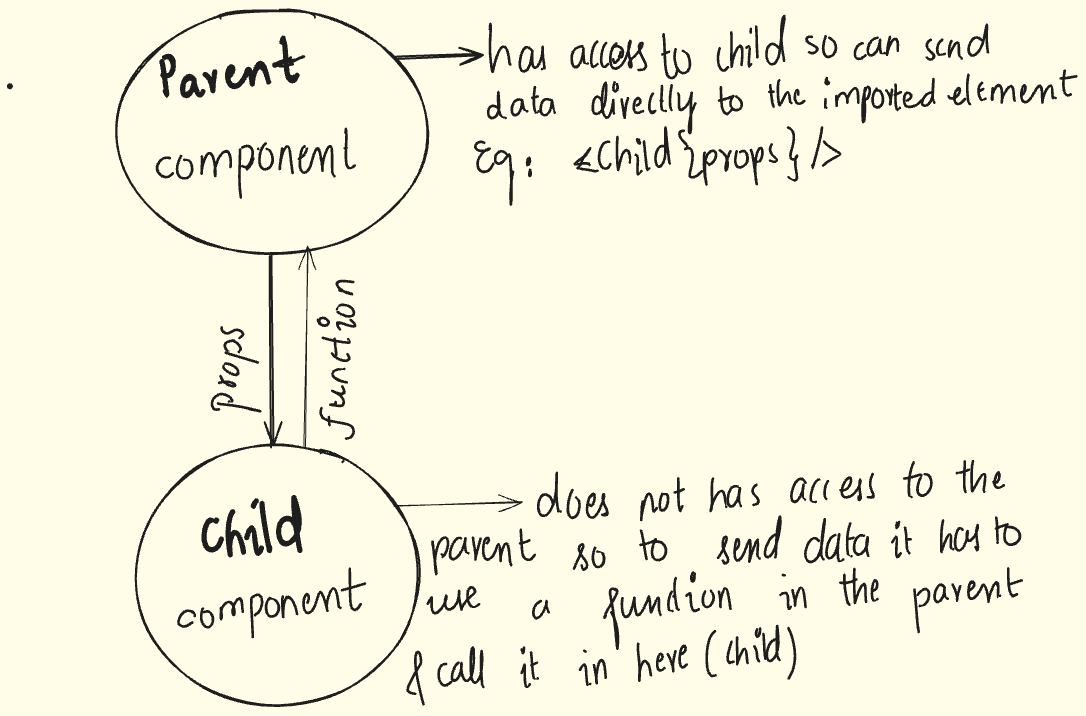 Parent
component
has access to child so can send
data directly to the imported element
Eg: <Child {props} />
props
function
Child
component
does not has access to the
parent so to send data it has to
use a function in the parent
& call it in here (child)